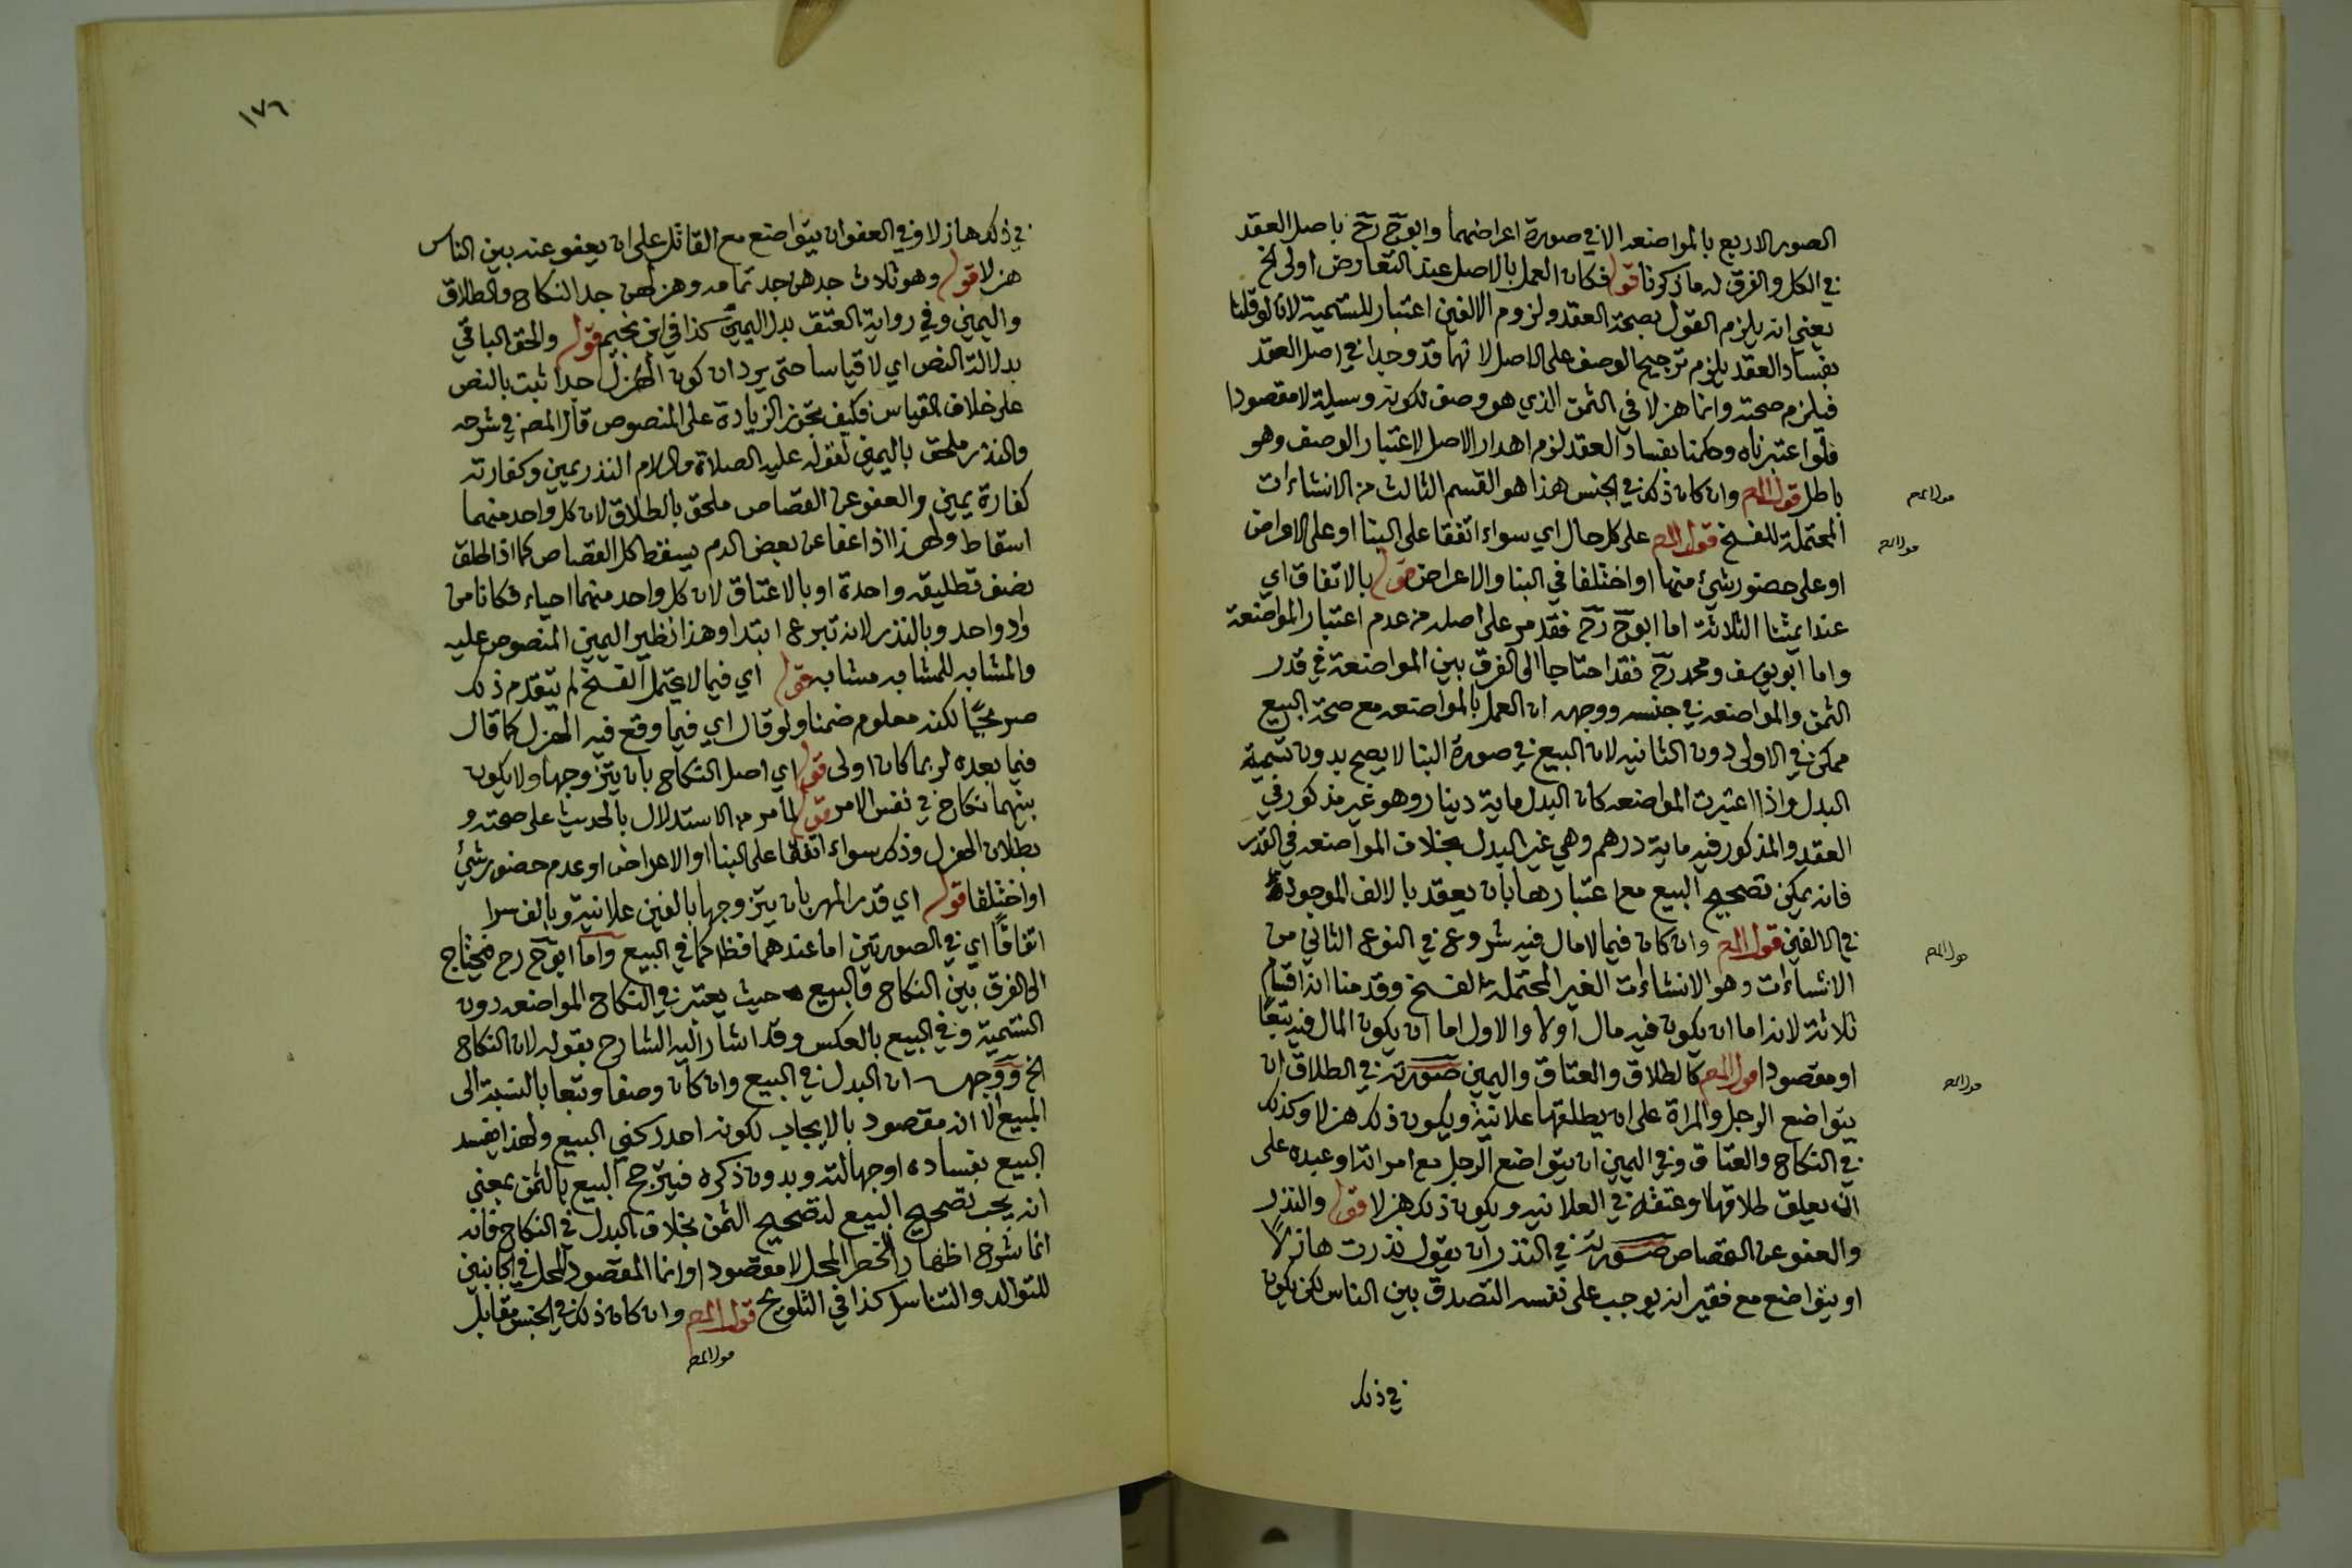 الصور الاربع بالمواضعه الا في صورة اعراضهما وابوح رح باصل العقد
في الكل والفرق له ما ذكرنا قوله فكان العمل بالاصل عند التعارض اولى الخ
يعني انه يلزم القول بصحة العقد ولزوم الالفين اعتبار للتسمية لانا لو قلنا
بفساد العقد يلزم ترجيح الوصف على الاصل لانهما قد وجدا في اصل العقد
فيلزم صحته وانما هزلا في الثمن الذي هو وصف لكونه وسيلة لا مقصودا
فلو اعتبرناه وحكمنا بفساد العقد لزم اهدار الاصل لاعتبار الوصف وهو
باطل قول المص وان كان ذلك في الجنس هذا هو القسم الثالث من الانشاءات
قول المص
المحتملة للفسخ قول المص على كل حال اي سواء اتفقا على البنا او على الاعراض
قول المص
او على حضور شئ منهما او اختلفا في البنا والاعراض قوله بالاتفاق اي
عند ايمتنا الثلاثة اما ابوح رح فقد مر على اصله من عدم اعتبار المواضعة
واما ابو يوسف ومحمد رح فقد احتاجا الى الفرق بين المواضعة في قدر
الثمن والمواضعه في جنسه ووجهه ان العمل بالمواضعه مع صحة البيع
ممكن في الاولى دون الثانيه لان البيع في صورة البنا لا يصح بدون تسمية
البدل واذا اعتبرت المواضعه كان البدل ماية دينار وهو غير مذكور في
العقد والمذكور فيه ماية درهم وهي غير البدل بخلاف المواضعه في القدر
فانه يمكن تصحيح البيع مع اعتبارها بان يعقد بالالف الموجودة
في الالفين قول المص وان كان فيما لا مال فيه شروع في النوع الثاني من
قول المص
الانشاءات وهو الانشاءات الغير المحتملة الفسخ وقدمنا انه اقسام
ثلاثة لانه اما ان يكون فيه مال او لا والاول اما ان يكون المال فيه تبعًا
او مقصودا قول المص كالطلاق والعتاق واليمين صورته في الطلاق ان
قول المص
يتواضع الرجل والمراة على ان يطلقها علانية ويكون ذلك هزلا وكذلك
في النكاح والعتاق وفي اليمين ان يتواضع الرجل مع امراته او عبده على
ان يعلق طلاقها او عتقه في العلانيه ويكون ذلك هزلا قوله والنذر
والعفو عن القصاص صورته في النذر ان يقول نذرت هازلًا
او يتواضع مع فقير انه يوجب على نفسه التصدق بين الناس لكن يكون
في ذلك
١٧٦
في ذلك هازلا وفي العفو ان يتواضع مع القاتل على ان يعفو عنه بين الناس
هزلا قوله وهو ثلاث جدهن جد تمامه وهزلهن جد النكاح والطلاق
واليمين وفي رواية العتق بدل اليمين كذا في ابن نجيم قوله والحق الباقي
بدلالة النص اي لا قياسا حتى يرد ان كون الهزل جدا ثبت بالنص
على خلاف القياس فكيف تجوز الزيادة على المنصوص قال المص في شرحه
والنذر ملحق باليمين لقوله عليه الصلاة والسلام النذر يمين وكفارته
كفارة يمين والعفو عن القصاص ملحق بالطلاق لان كل واحد منهما
اسقاط ولهذا اذا عفا عن بعض الدم يسقط كل القصاص كما اذا طلق
نصف تطليقه واحدة او بالاعتاق لان كل واحد منهما احياء فكانا من
واد واحد وبالنذر لانه تبرع ابتدا وهذا نظير اليمين المنصوص عليه
والمشابه للمشابه مشابه قوله اي فيما لا يحتمل الفسخ لم يتقدم ذلك
صريحًا لكنه معلوم ضمنا ولو قال اي فيما وقع فيه الهزل كما قال
فيما بعده لربما كان اولى قوله اي اصل النكاح بان يتزوجها ولا يكون
بينهما نكاح في نفس الامر قوله لما مر من الاستدلال بالحديث على صحته و
بطلان الهزل وذلك سواء اتفقا على البنا او الاعراض او عدم حضور شئ
او اختلفا قوله اي قدر المهر بان يتزوجها بالفين علانية وبالف سرا
اتفاقًا اي في الصورتين اما عندهما فظ كما في البيع واما ابوح رح فيحتاج
الى الفرق بين النكاح والبيع حيث يعتبر في النكاح المواضعه دون
التسمية وفي البيع بالعكس وقد اشار اليه الشارح بقوله لان النكاح
الخ ووجهه ان البدل في البيع وان كان وصفا وتبعا بالنسبة الى
المبيع الا انه مقصود بالايجاب لكونه احد ركني البيع ولهذا يفسد
البيع بفساده او جهالته وبدون ذكره فيترجح البيع بالثمن بمعنى
انه يجب تصحيح البيع لتصحيح الثمن بخلاف البدل في النكاح فانه
انما شرع اظهارا لخطر المحل لا مقصودا وانما المقصود المحل في الجانبين
للتوالد والتناسل كذا في التلويح قول المص وان كان ذلك في الجنس مقابل
قول المص